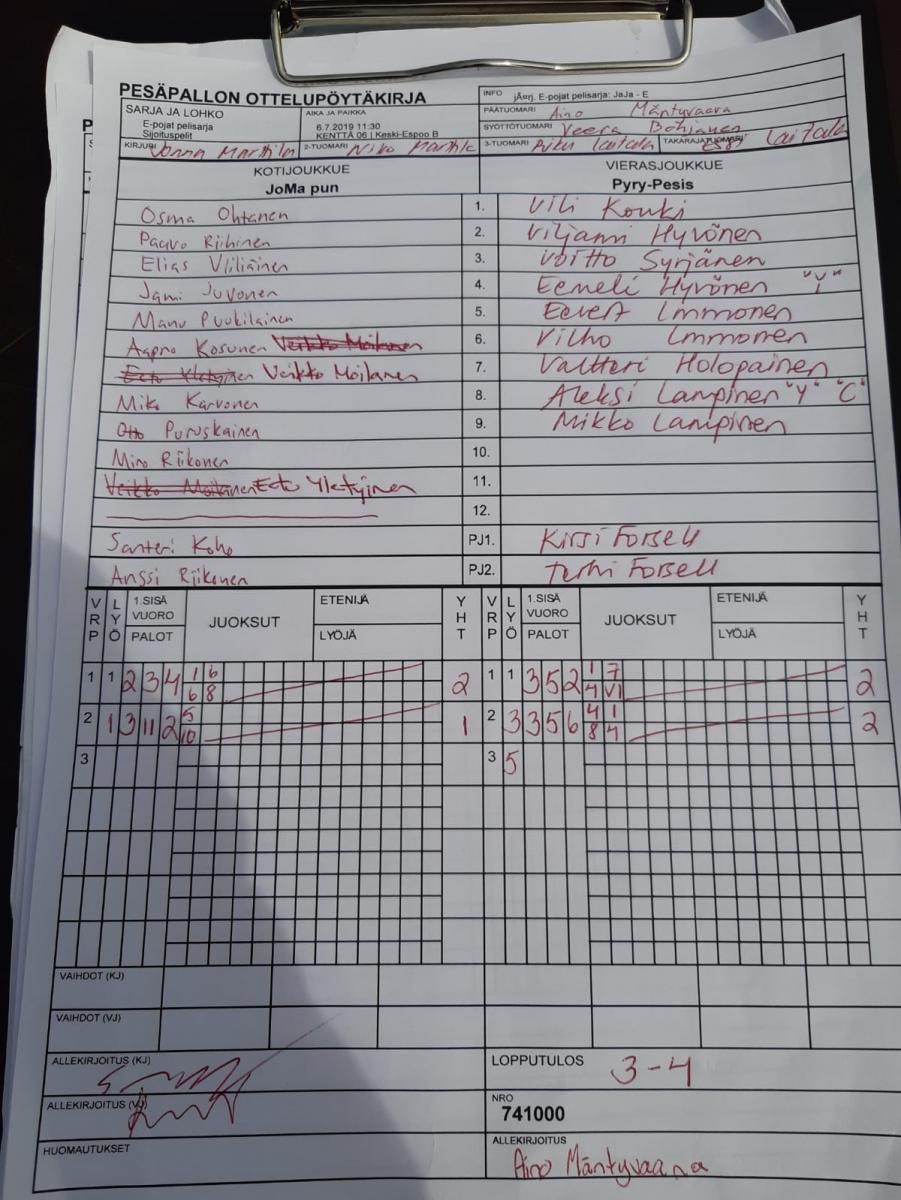 PESÄPALLON OTTELUPÖYTÄKIRJA
INFO jÄ¤rj. E-pojat pelisarja: JaJa - E
SARJA JA LOHKO
E-pojat pelisarja
Sijoituspelit
AIKA JA PAIKKA
6.7.2019 11:30
KENTTÄ 06 | Keski-Espoo B
PÄÄTUOMARI Aino Mäntyvaara
SYÖTTÖTUOMARI Veera
KIRJURI Jonna 2-TUOMARI Niko 3-TUOMARI Riku Laitala TAKARAJATUOMARI Laitala
KOTIJOUKKUE VIERASJOUKKUE
JoMa pun Pyry-Pesis
Osma Ohtanen 1. Vili Kouki
Paavo Riihinen 2. Viljami Hyvönen
Elias 3. Voitto Syrjänen
Jami Juvonen 4. Eemeli Hyvönen
Manu Puukilainen 5. Eevert Immonen
Aapro Kosunen Veikko Moilanen 6. Vilho Immonen
Eeto Yletyinen Veikko Moilanen 7. Valtteri Holopainen
Miko Karvonen 8. Aleksi Lampinen "Y" "C"
Otto Puruskainen 9. Mikko Lampinen
Miro Riikonen 10.
Veikko Moilanen Eeto Yletyinen 11.
12.
Santeri Koho PJ1. Kirsi Forsell
Anssi Riikonen PJ2. Terhi Forsell
VRP LYÖ 1.SISÄ VUORO PALOT JUOKSUT ETENIJÄ LYÖJÄ YHT VRP LYÖ 1.SISÄ VUORO PALOT JUOKSUT ETENIJÄ LYÖJÄ YHT
1 1 2 3 4 1 6 2 1 1 3 5 2 1 7 2
6 8 4 VI
2 1 3 11 2 5 1 2 3 3 5 6 4 1 2
10 8 4
3 3 5
VAIHDOT (KJ)
VAIHDOT (VJ)
ALLEKIRJOITUS (KJ) LOPPUTULOS 3-4
ALLEKIRJOITUS (VJ) NRO
741000
HUOMAUTUKSET ALLEKIRJOITUS
Aino Mäntyvaara